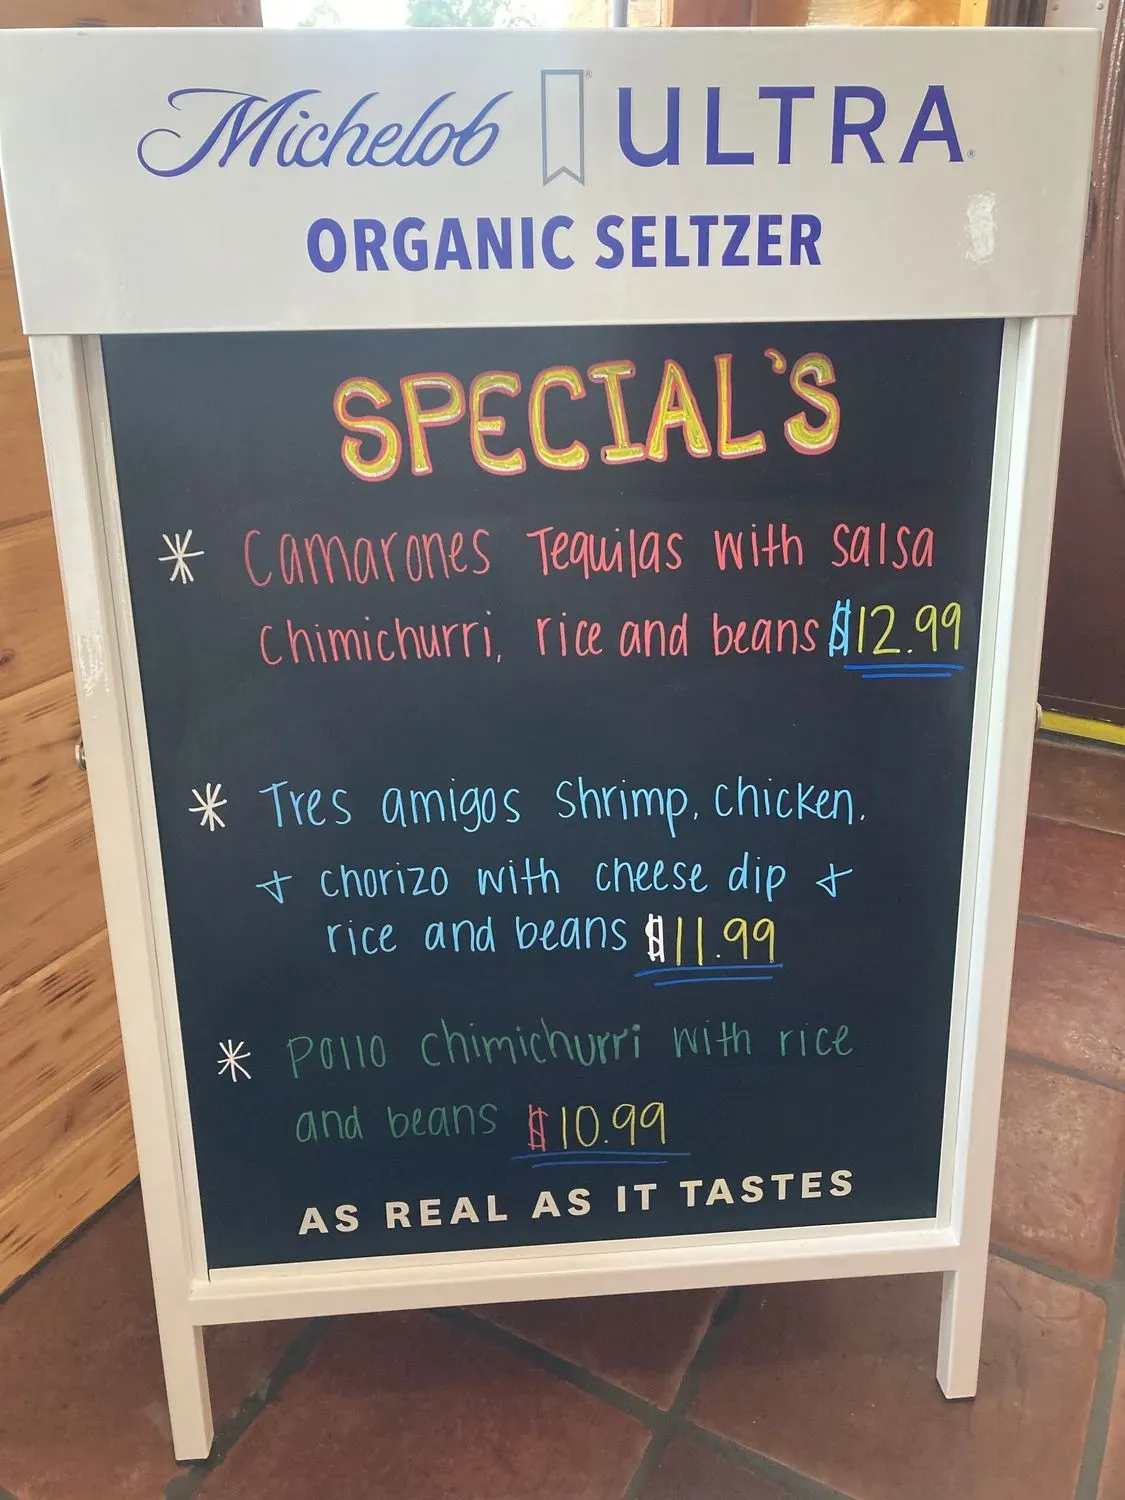 Michelob ULTRA
ORGANIC SELTZER
SPECIAL'S
* Camarones Tequilas with salsa
chimichurri, rice and beans $12.99
* Tres amigos shrimp, chicken.
+ chorizo with cheese dip +
rice and beans $11.99
* Pollo chimichurri with rice
and beans $10.99
AS REAL AS IT TASTES